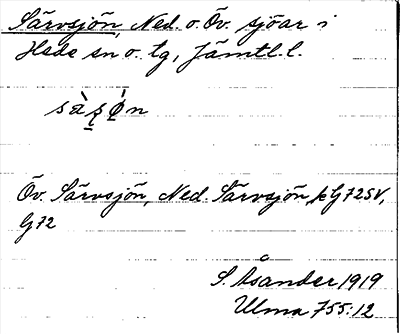 Särvsjön, Ned. o. Öv. sjöar i
Hede sn o. tg, Jämtl. l.
Öv. Särvsjön, Ned. Särvsjön, kG72SV,
G72
S. Åsander 1919
Ulma 755:12